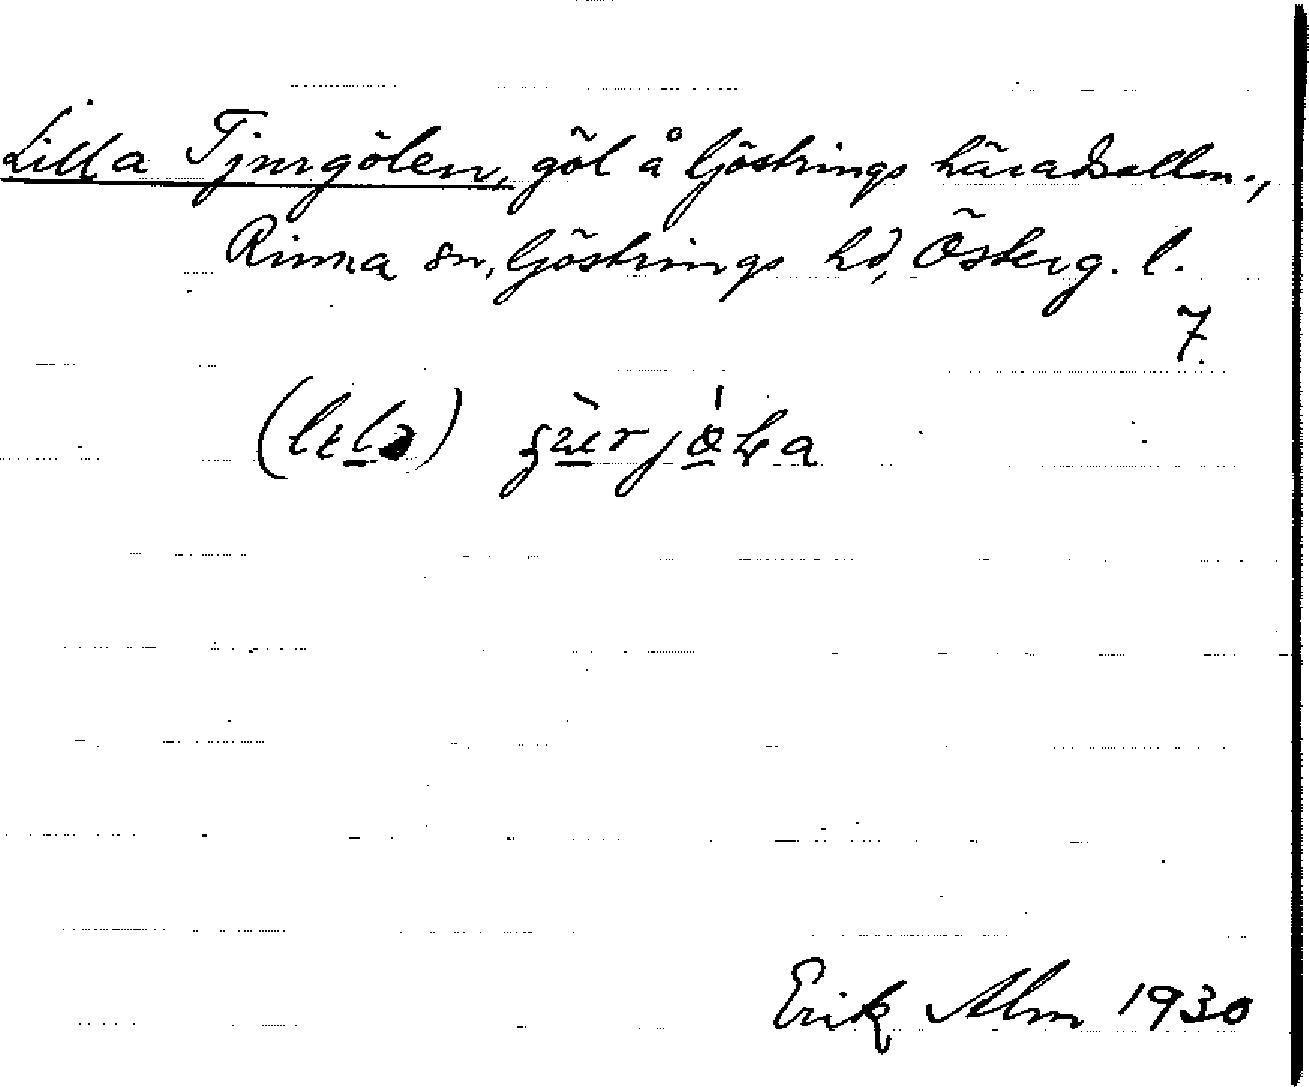 Lilla Tjurgölen, göl å Göstrings häradsallm.,
Rinna sn, Göstrings hd, Österg. l.
7.
Erik Alm 1930